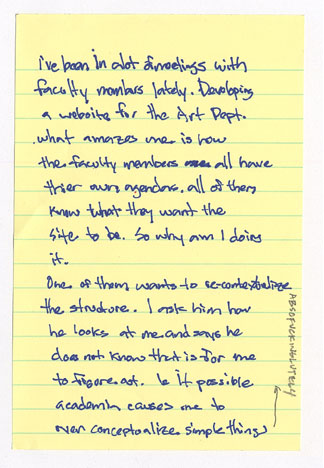 i've been in alot of meetings with
faculty members lately. Developing
a website for the Art Dept.
what amazes me is how
the faculty members all have
thier own agendas. all of them
know what they want the
site to be. So why am I doing
it.
One of them wants to re-contextualize
the structure. I ask him how
he looks at me and says he
does not know that is for me
to figure out. Is it possible
academia causes one to
over conceptualize simple things
ABSOFUCKINGLUTELY